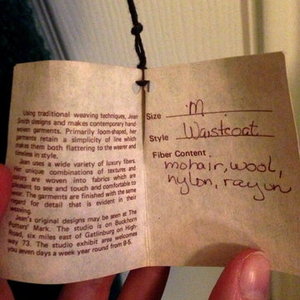 Using traditional weaving techniques, Jean
Smith designs and makes contemporary hand
woven garments. Primarily loom-shaped, her
garments retain a simplicity of line which
makes them both flattering to the wearer and
timeless in style.
Jean uses a wide variety of luxury fibers.
Her unique combinations of textures and
colors are woven into fabrics which are
pleasant to see and touch and comfortable to
wear. The garments are finished with the same
regard for detail that is evident in their
weaving.
Jean's original designs may be seen at The
Potters' Mark. The studio is on Buckhorn
Road, six miles east of Gatlinburg on High-
way 73. The studio exhibit area welcomes
you seven days a week year round from 9-5.
Size M
Style Waistcoat
Fiber Content
mohair, wool,
nylon, rayon